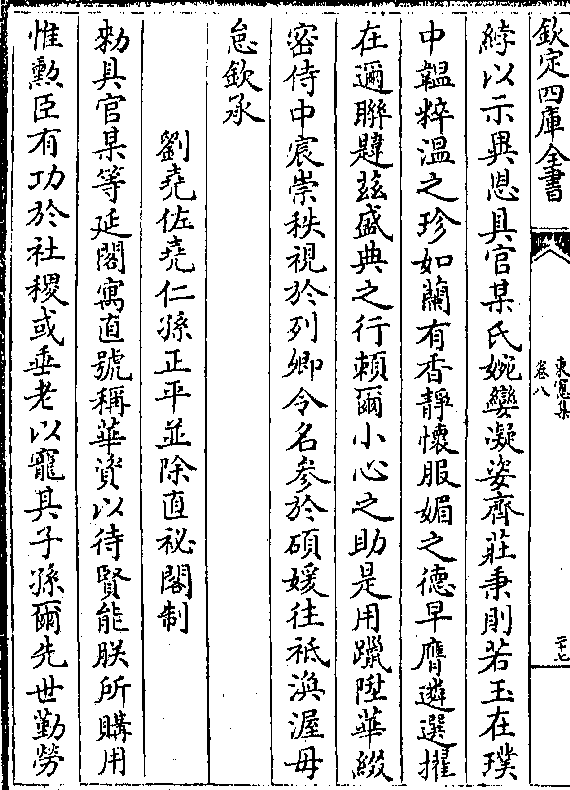 欽定四庫全書
東窻集
卷八
二十七
綍以示異恩具官某氏婉孌凝姿齊莊秉則若玉在璞
中韞粹溫之珍如蘭有香靜懷服媚之德早膺遴選擢
在邇聯韙兹盛典之行頼爾小心之助是用躐陞華綴
密侍中宸崇秩視於列卿令名參於碩媛往祗渙渥毋
怠欽承
劉堯佐堯仁孫正平並除直祕閣制
勅具官某等延閣寓直號稱華資以待賢能朕所購用
惟勲臣有功於社稷或垂老以寵其子孫爾先世勤勞